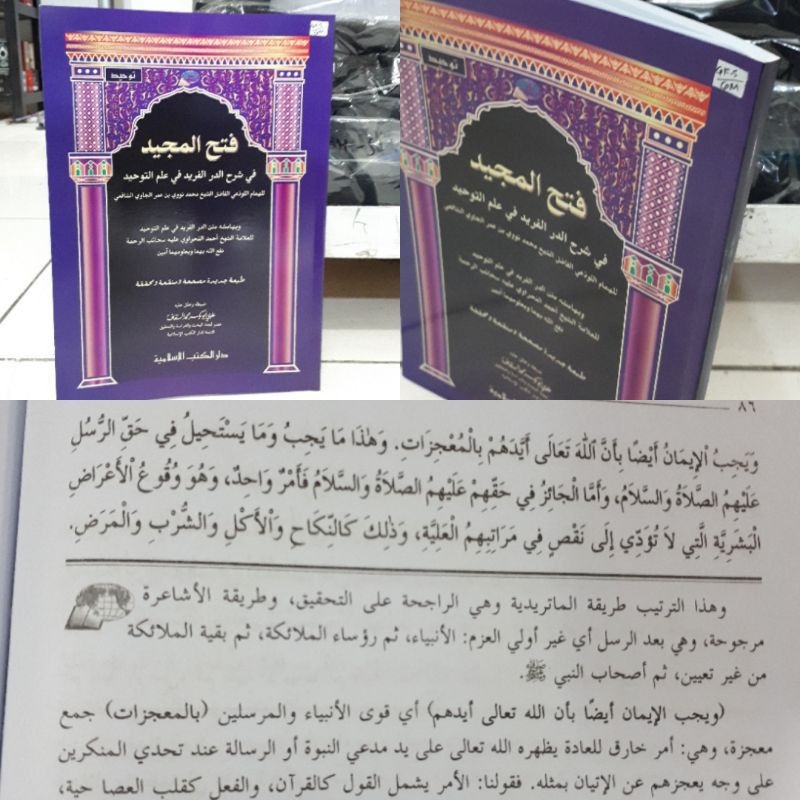 توحيد
فتح المجيد
في شرح الدر الفريد في علم التوحيد
للهمام اللوذعي الفاضل الشيخ محمد نووي بن عمر الجاوي الشافعي
وبهامشه متن الدر الفريد في علم التوحيد
للعلامة الشيخ أحمد النحراوي عليه سحائب الرحمة
نفع الله بهما وبعلومهما آمين
طبعة جديدة مصححة ومنقحة ومحققة
ضبطه وعلق عليه
دار الكتب الإسلامية
توحيد
فتح المجيد
في شرح الدر الفريد في علم التوحيد
للهمام اللوذعي الفاضل الشيخ محمد نووي بن عمر الجاوي الشافعي
وبهامشه متن الدر الفريد في علم التوحيد
للعلامة الشيخ أحمد النحراوي عليه سحائب الرحمة
نفع الله بهما وبعلومهما آمين
طبعة جديدة مصححة ومنقحة ومحققة
٨٦
وَيَجِبُ الْإِيمَانُ أَيْضًا بِأَنَّ اللَّهَ تَعَالَى أَيَّدَهُمْ بِالْمُعْجِزَاتِ. وَهٰذَا مَا يَجِبُ وَمَا يَسْتَحِيلُ فِي حَقِّ الرُّسُلِ
عَلَيْهِمُ الصَّلَاةُ وَالسَّلَامُ، وَأَمَّا الْجَائِزُ فِي حَقِّهِمْ عَلَيْهِمُ الصَّلَاةُ وَالسَّلَامُ فَأَمْرٌ وَاحِدٌ، وَهُوَ وُقُوعُ الْأَعْرَاضِ
الْبَشَرِيَّةِ الَّتِي لَا تُؤَدِّي إِلَى نَقْصٍ فِي مَرَاتِبِهِمُ الْعَلِيَّةِ، وَذٰلِكَ كَالنِّكَاحِ وَالْأَكْلِ وَالشُّرْبِ وَالْمَرَضِ.
وهذا الترتيب طريقة الماتريدية وهي الراجحة على التحقيق، وطريقة الأشاعرة
مرجوحة، وهي بعد الرسل أي غير أولي العزم: الأنبياء، ثم رؤساء الملائكة، ثم بقية الملائكة
من غير تعيين، ثم أصحاب النبي ﷺ.
(ويجب الإيمان أيضًا بأن الله تعالى أيدهم) أي قوى الأنبياء والمرسلين (بالمعجزات) جمع
معجزة، وهي: أمر خارق للعادة يظهره الله تعالى على يد مدعي النبوة أو الرسالة عند تحدي المنكرين
على وجه يعجزهم عن الإتيان بمثله. فقولنا: الأمر يشمل القول كالقرآن، والفعل كقلب العصا حية،